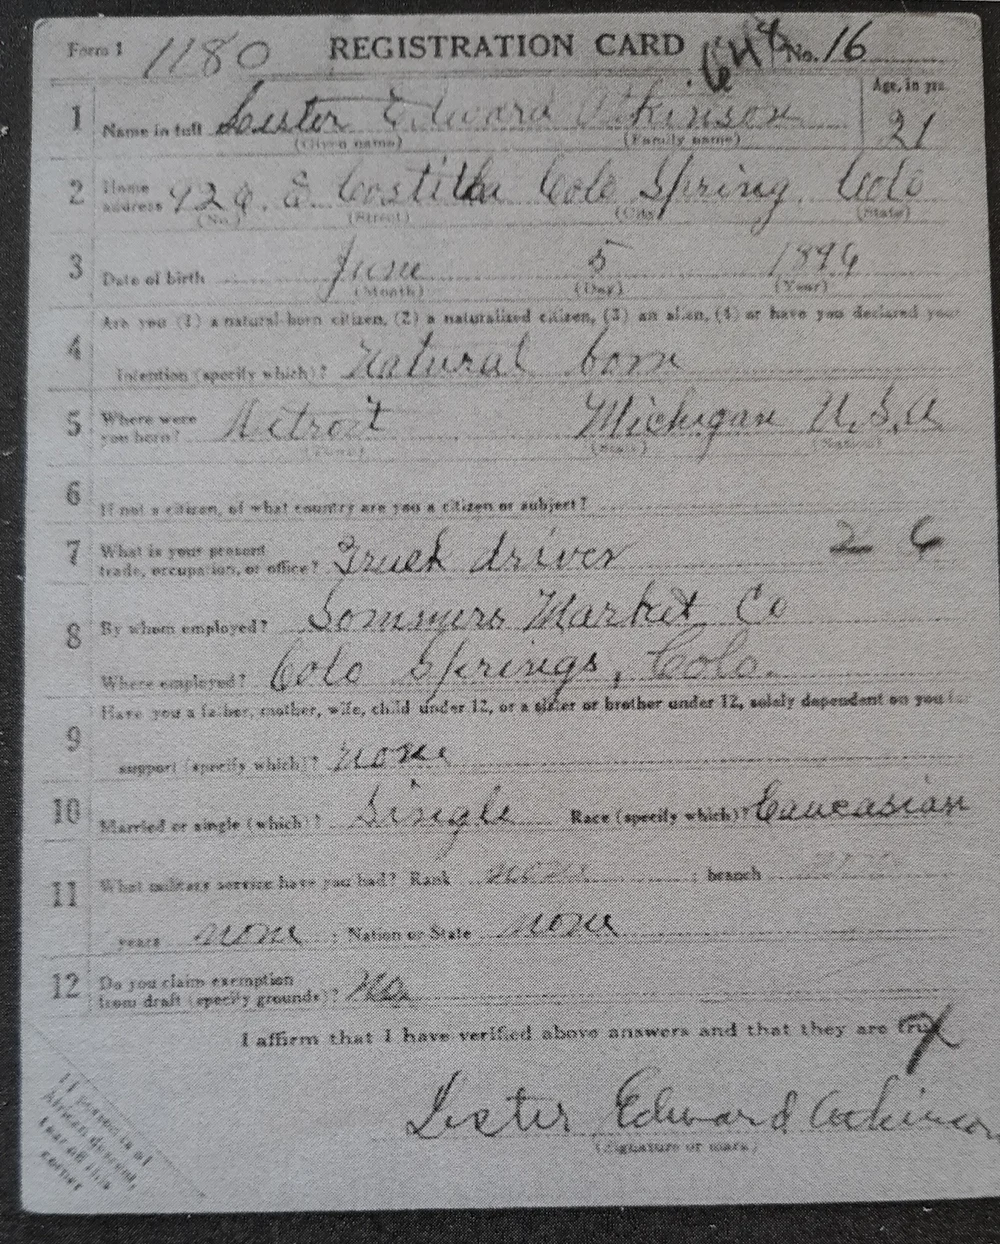 Form 1 1180 REGISTRATION CARD No. 16
1 Name in full Lester Edward Atkinson Age, in yrs. 21
(Given name) (Family name)
2 Home address E. Costilla Colo Spring, Colo
(No.) (Street) (City) (State)
3 Date of birth June 5 1896
(Month) (Day) (Year)
Are you (1) a natural-born citizen, (2) a naturalized citizen, (3) an alien, (4) or have you declared your
4 intention (specify which)? Natural born
5 Where were you born? Detroit Michigan U.S.A
(Town) (State) (Nation)
6 If not a citizen, of what country are you a citizen or subject?
7 What is your present
trade, occupation, or office? Truck driver 2 6
8 By whom employed? Sommers Market Co
Where employed? Colo Springs, Colo.
Have you a father, mother, wife, child under 12, or a sister or brother under 12, solely dependent on you for
9 support (specify which)? none
10 Married or single (which)? Single Race (specify which)? Caucasian
11 What military service have you had? Rank none ; branch none
years none ; Nation or State none
12 Do you claim exemption
from draft (specify grounds)? No.
I affirm that I have verified above answers and that they are true
Lester Edward Atkinson
(Signature or mark)
If person is of
African descent,
tear off this
corner